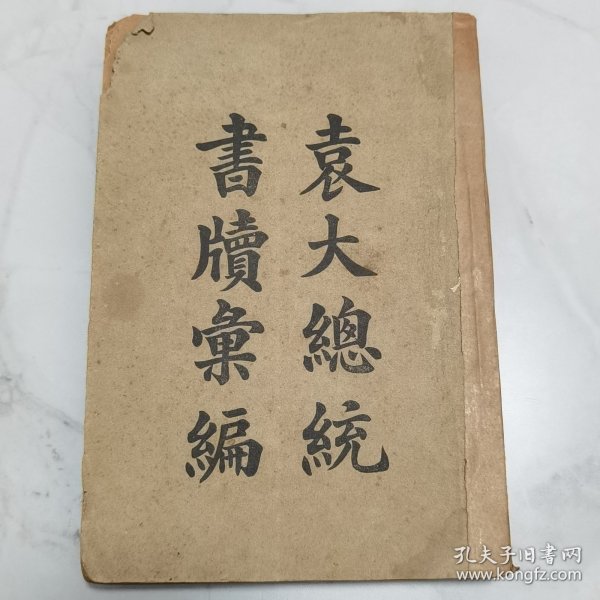 袁大總統
書牘彙編
孔夫子旧書网
www.kongfz.com